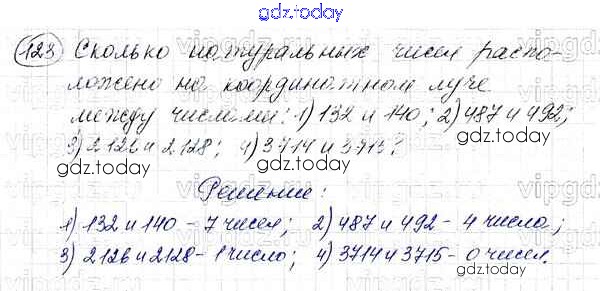 gdz.today
123 Сколько натуральных чисел распо-
gdz.today
ложено на координатном луче
между числами: 1) 132 и 140; 2) 487 и 492;
3) 2126 и 2128; 4) 3714 и 3715?
gdz.today gdz.today
Решение:
1) 132 и 140 - 7 чисел; 2) 487 и 492 - 4 числа;
3) 2126 и 2128 - 1 число; 4) 3714 и 3715 - 0 чисел.
gdz.today gdz.today